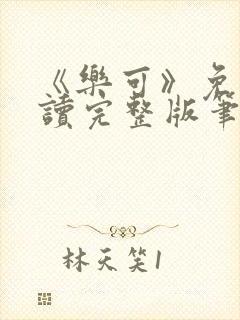 《樂可》免
讀完整版筆
林天笑1